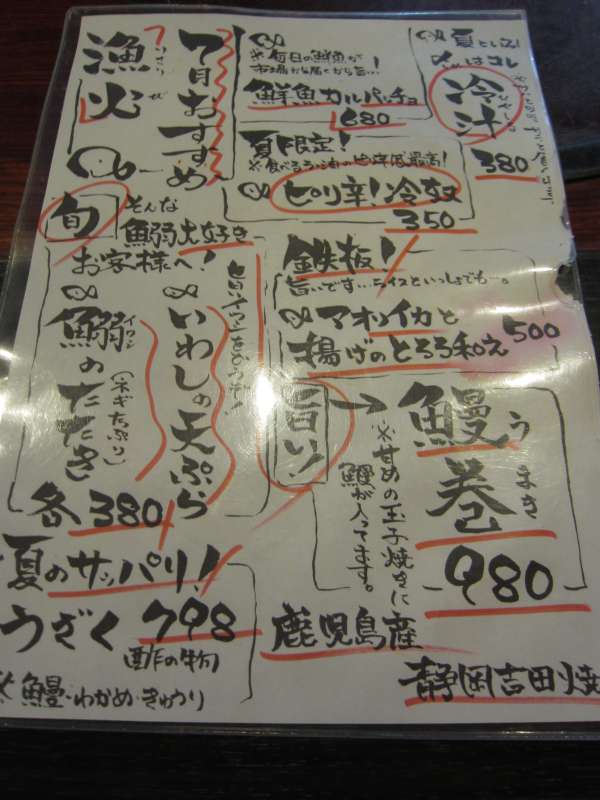 7月おすすめ
漁火
いさりび
※毎日の鮮魚が
市場から届くから旨い!
鮮魚カルパッチョ
680
夏といえば
やっぱコレ
冷汁
ひやしる
380
夏限定!
ピリ辛!冷奴
350
旬
そんな
鰯大好き
お客様へ!
旨いイワシをどうぞ!
いわしの天ぷら
鰯のたたき
イワシ
(ネギたっぷり)
各380
鉄板!
旨いです…ライスといっしょでも…。
アオリイカと
揚げのとろろ和え
500
旨い!→
鰻巻
うまき
※甘めの玉子焼きに
鰻が入ってます。
980
夏のサッパリ!
うざく 798
酢の物
※鰻・わかめ・きゅうり
鹿児島産
静岡吉田焼